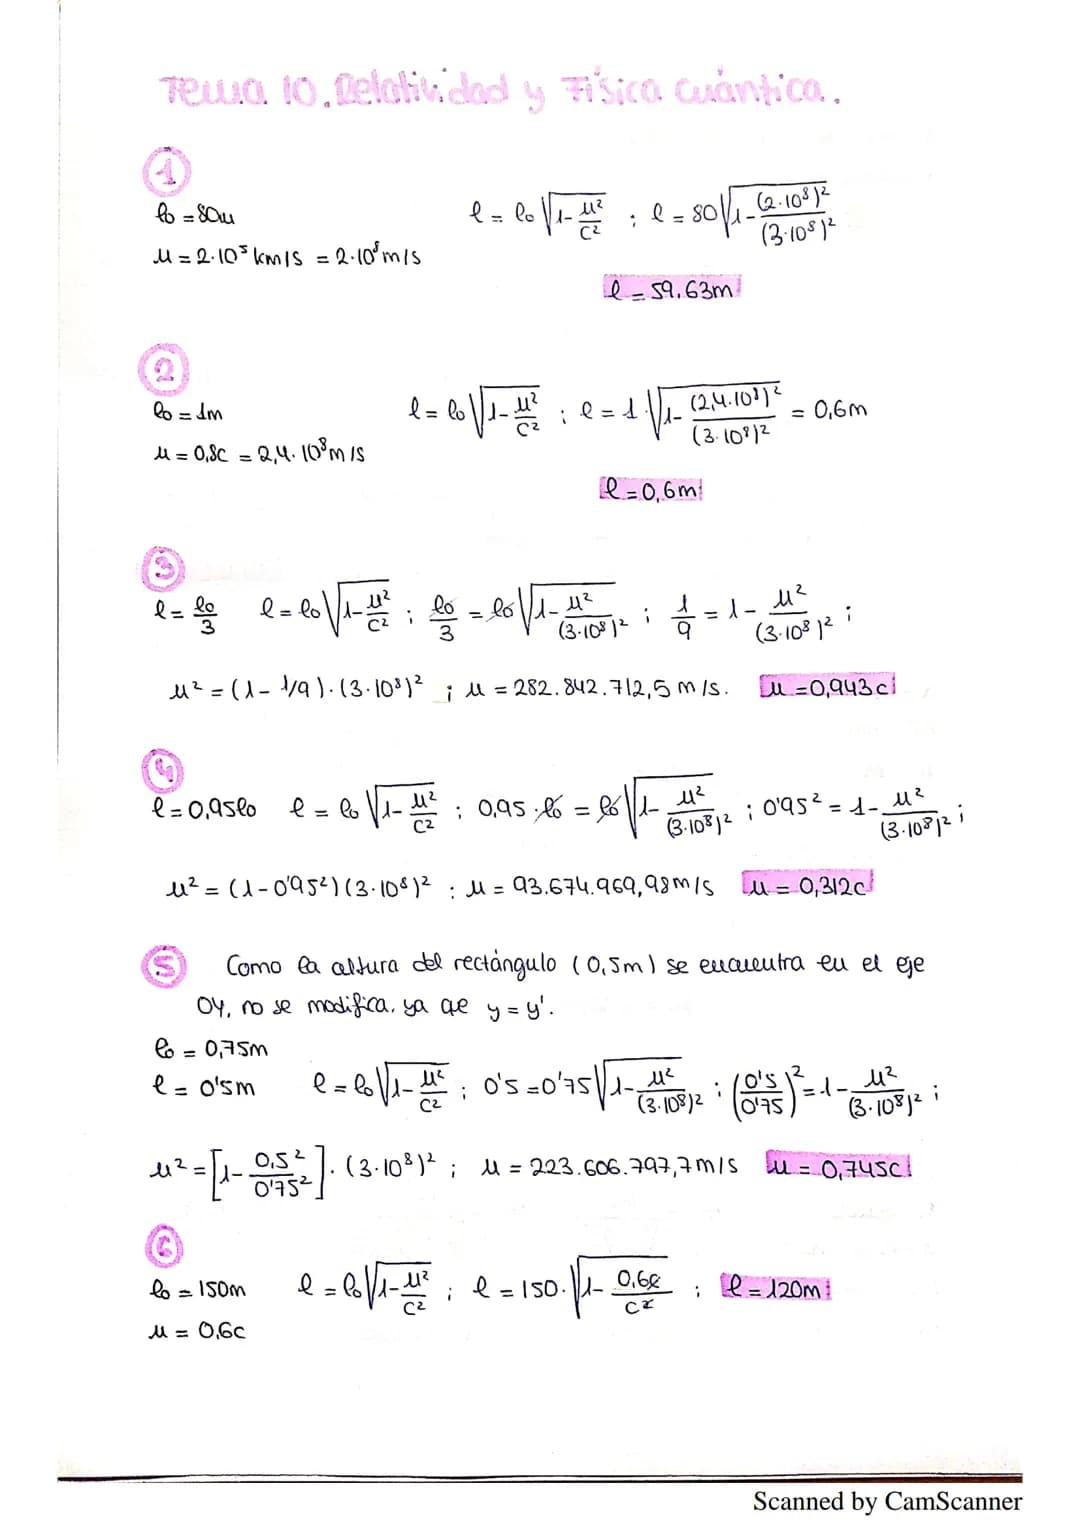 Tema 10. Relatividad y Física Cuántica.
1
l₀ = 80m
l = l₀ √(1 - μ²/c²) ; l = 80 √(1 - (2·10⁸)²/(3·10⁸)²)
μ = 2·10⁵ km/s = 2·10⁸ m/s
l = 59,63m
2
l₀ = 1m
l = l₀ √(1 - μ²/c²) ; l = 1·√(1 - (2,4·10⁸)²/(3·10⁸)²) = 0,6m
μ = 0,8c = 2,4·10⁸ m/s
l = 0,6m
3
l = l₀/3 l = l₀ √(1 - μ²/c²) ; l₀/3 = l₀ √(1 - μ²/(3·10⁸)²) ; 1/9 = 1 - μ²/(3·10⁸)² ;
μ² = (1 - 1/9)·(3·10⁸)² ; μ = 282.842.712,5 m/s. μ = 0,943c
4
l = 0,95l₀ l = l₀ √(1 - μ²/c²) ; 0,95·l₀ = l₀ √(1 - μ²/(3·10⁸)²) ; 0'95² = 1 - μ²/(3·10⁸)² ;
μ² = (1 - 0'95²)(3·10⁸)² ; μ = 93.674.969,98 m/s μ = 0,312c
5 Como la altura del rectángulo (0,5m) se encuentra en el eje
OY, no se modifica, ya que y = y'.
l₀ = 0,75m
l = 0'5m l = l₀ √(1 - μ²/c²) ; 0'5 = 0'75 √(1 - μ²/(3·10⁸)²) ; (0'5/0'75)² = 1 - μ²/(3·10⁸)² ;
μ² = [1 - 0,5²/0'75²]·(3·10⁸)² ; μ = 223.606.797,7 m/s μ = 0,745c
6
l₀ = 150m l = l₀ √(1 - μ²/c²) ; l = 150·√(1 - 0,6c/c²) ; l = 120m
μ = 0,6c
Scanned by CamScanner